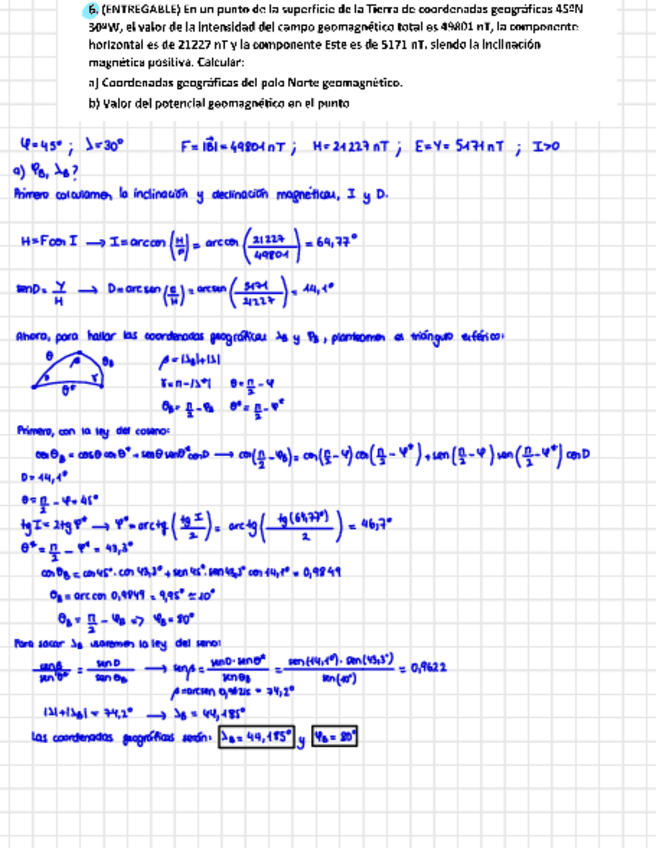 6. (ENTREGABLE) En un punto de la superficie de la Tierra de coordenadas geográficas 45ºN
30ºW, el valor de la intensidad del campo geomagnético total es 49801 nT, la componente
horizontal es de 21227 nT y la componente Este es de 5171 nT, siendo la inclinación
magnética positiva. Calcular:
a) Coordenadas geográficas del polo Norte geomagnético.
b) Valor del potencial geomagnético en el punto
φ=45° ; λ=30° F=|B|=49801 nT ; H=21227 nT ; E=Y=5171 nT ; I>0
a) φB, λB?
Primero calculamos la inclinación y declinación magnéticas, I y D.
H=F cos I → I=arccos (H/F) = arccos (21227/49801) = 64,77°
sen D = Y/H → D=arcsen (E/H) = arcsen (5171/21227) = 14,1°
Ahora, para hallar las coordenadas geográficas λB y φB, planteamos el triángulo esférico:
θ β θB D γ θ*
β=|λB|+|λ|
γ=π-|λ*| θ=π/2-φ
θB=π/2-φB θ*=π/2-φ*
Primero, con la ley del coseno:
cos θB = cos θ cos θ* + sen θ sen θ* cos D → cos(π/2-φB) = cos(π/2-φ) cos(π/2-φ*) + sen(π/2-φ) sen(π/2-φ*) cos D
D=14,1°
θ=π/2-φ=45°
tg I=2tg φ* → φ*=arctg (tg I/2) = arctg (tg(64,77°)/2) = 46,7°
θ*=π/2-φ*=43,3°
cos θB = cos 45°·cos 43,3° + sen 45°·sen 43,3° cos 14,1° = 0,9849
θB = arc cos 0,9849 = 9,95° ≃ 10°
θB = π/2 - φB => φB=80°
Para sacar λB usaremos la ley del seno:
senβ/senθ* = senD/senθB → senβ = senD·senθ*/senθB = sen(14,1°)·sen(43,3°)/sen(10°) = 0,9622
β=arcsen 0,9622 = 74,2°
|λ|+|λB| = 74,2° → λB = 44,185°
Las coordenadas geográficas serán: λB = 44,185° y φB = 80°